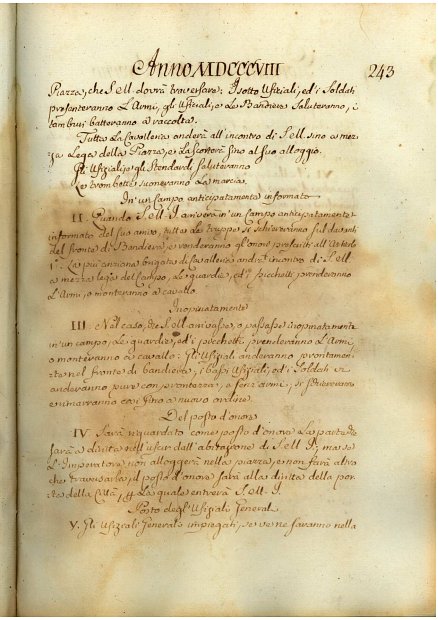 Anno MDCCCVIII 243
Piazza, che S. e M. dovrà traversare: I sotto Ufiziali, ed i Soldati
presenteranno L'Armi, gli Ufiziali, e Le Bandiere Saluteranno, i
tamburi batteranno a raccolta.
Tutta La Cavalleria anderà all'incontro di S. e M. sino a mez-
za Lega della Piazza, e La Scorterà sino al suo alloggio.
Gli Ufiziali, e gli Stendardi Saluteranno
Le trombette suoneranno La marcia.
In un Campo anticipatamente informato
II. Quando S. e M. I. arriverà in un Campo anticipatamente
informato del suo arrivo, tutte Le truppe si schiereranno sul davanti
del fronte di Bandiera, e renderanno gl'onori prescritti all'Articolo
I.° La più anziana brigata di Cavalleria andrà incontro di S. e M.
a mezza lega del Campo, Le guardie, ed i picchetti prenderanno
L'Armi, o monteranno a cavallo.
Inopinatamente
III. Nel caso, che S. e M. arrivasse, o passasse inopinatamente
in un campo, Le guardie, ed i picchetti prenderanno L'Armi,
o monteranno a cavallo: Gli Ufiziali anderanno prontamen-
te nel fronte di bandiera, i bassi Ufiziali, ed i Soldati vi
anderanno pure con prontezza, e senz'armi, si
e rimarranno così fino a nuovo ordine.
Del posto d'onore
IV. Sarà riguardato come posto d'onore La parte che
sarà a diritta nell'uscir dall'abitazione di S. e M. I., ma se
L'Imperatore non alloggerà nella piazza, e non farà altro
che traversarla, il posto d'onore sarà alla diritta della por-
ta della Città, p. La quale entrerà S. e M. I.
Posto degl'Ufiziali Generali
V. Gli Ufiziali Generali impiegati, se ve ne saranno nella